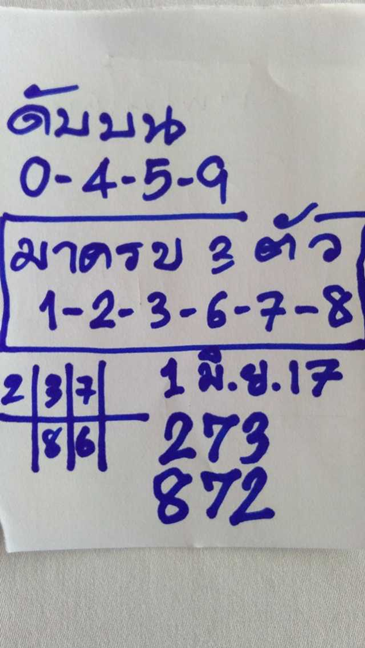 ดับบน
0-4-5-9
มาครบ 3 ตัว
1-2-3-6-7-8
2 3 7
8 6
1 มิ.ย.17
273
872